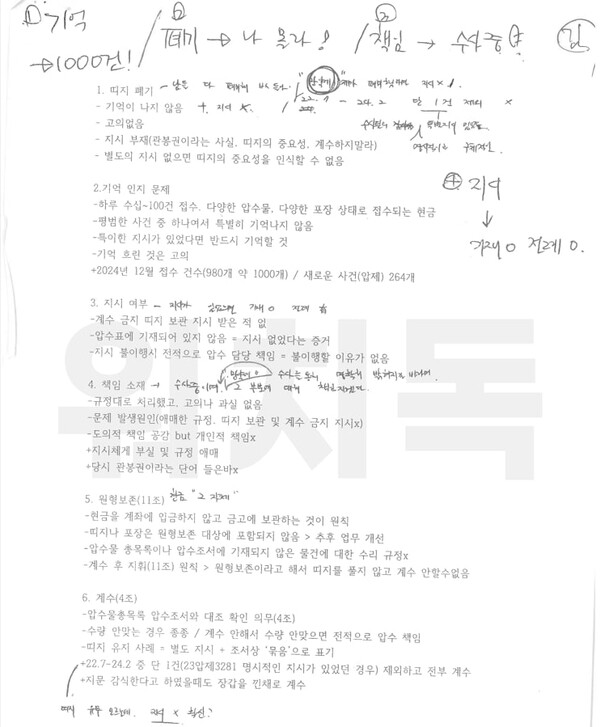 ① 기억 / ② 폐기 → 나 몰라! / ③ 책임 → 수사중 김
→ 1000건!
1. 띠지 폐기
- 기억이 나지 않음 + 지시 x.
22.7 - 24.2 단 1건 제외 x
- 고의없음
- 지시 부재(관봉권이라는 사실, 띠지의 중요성, 계수하지말라)
- 별도의 지시 없으면 띠지의 중요성을 인식할 수 없음
⊕ 지시
↓
기재 o 전례 o.
2.기억 인지 문제
-하루 수십~100건 접수, 다양한 압수물, 다양한 포장 상태로 접수되는 현금
-평범한 사건 중 하나여서 특별히 기억나지 않음
-특이한 지시가 있었다면 반드시 기억할 것
-기억 흐린 것은 고의
+2024년 12월 접수 건수(980개 약 1000개) / 새로운 사건(압제) 264개
3. 지시 여부 - 기재 o 전례 有
-계수 금지 띠지 보관 지시 받은 적 없
-압수표에 기재되어 있지 않음 = 지시 없었다는 증거
-지시 불이행시 전적으로 압수 담당 책임 = 불이행할 이유가 없음
4. 책임 소재 → 수사중이며, 그 부분에 대해
-규정대로 처리했고, 고의나 과실 없음
-문제 발생원인(애매한 규정, 띠지 보관 및 계수 금지 지시x)
-도의적 책임 공감 but 개인적 책임x
+지시체계 부실 및 규정 애매
+당시 관봉권이라는 단어 들은바x
5. 원형보존(11조) 현금 "그 자체"
-현금을 계좌에 입금하지 않고 금고에 보관하는 것이 원칙
-띠지나 포장은 원형보존 대상에 포함되지 않음 > 추후 업무 개선
-압수물 총목록이나 압수조서에 기재되지 않은 물건에 대한 수리 규정x
-계수 후 지휘(11조) 원칙 > 원형보존이라고 해서 띠지를 풀지 않고 계수 안할수없음
6. 계수(4조)
-압수물총목록 압수조서와 대조 확인 의무(4조)
-수량 안맞는 경우 종종 / 계수 안해서 수량 안맞으면 전적으로 압수 책임
-띠지 유지 사례 = 별도 지시 + 조서상 '묶음'으로 표기
+22.7~24.2 중 단 1건(23압제3281 명시적인 지시가 있었던 경우) 제외하고 전부 계수
+지문 감식한다고 하였을때도 장갑을 낀채로 계수
띠지 유무 모르는데, 지시 x 확신?
위치독